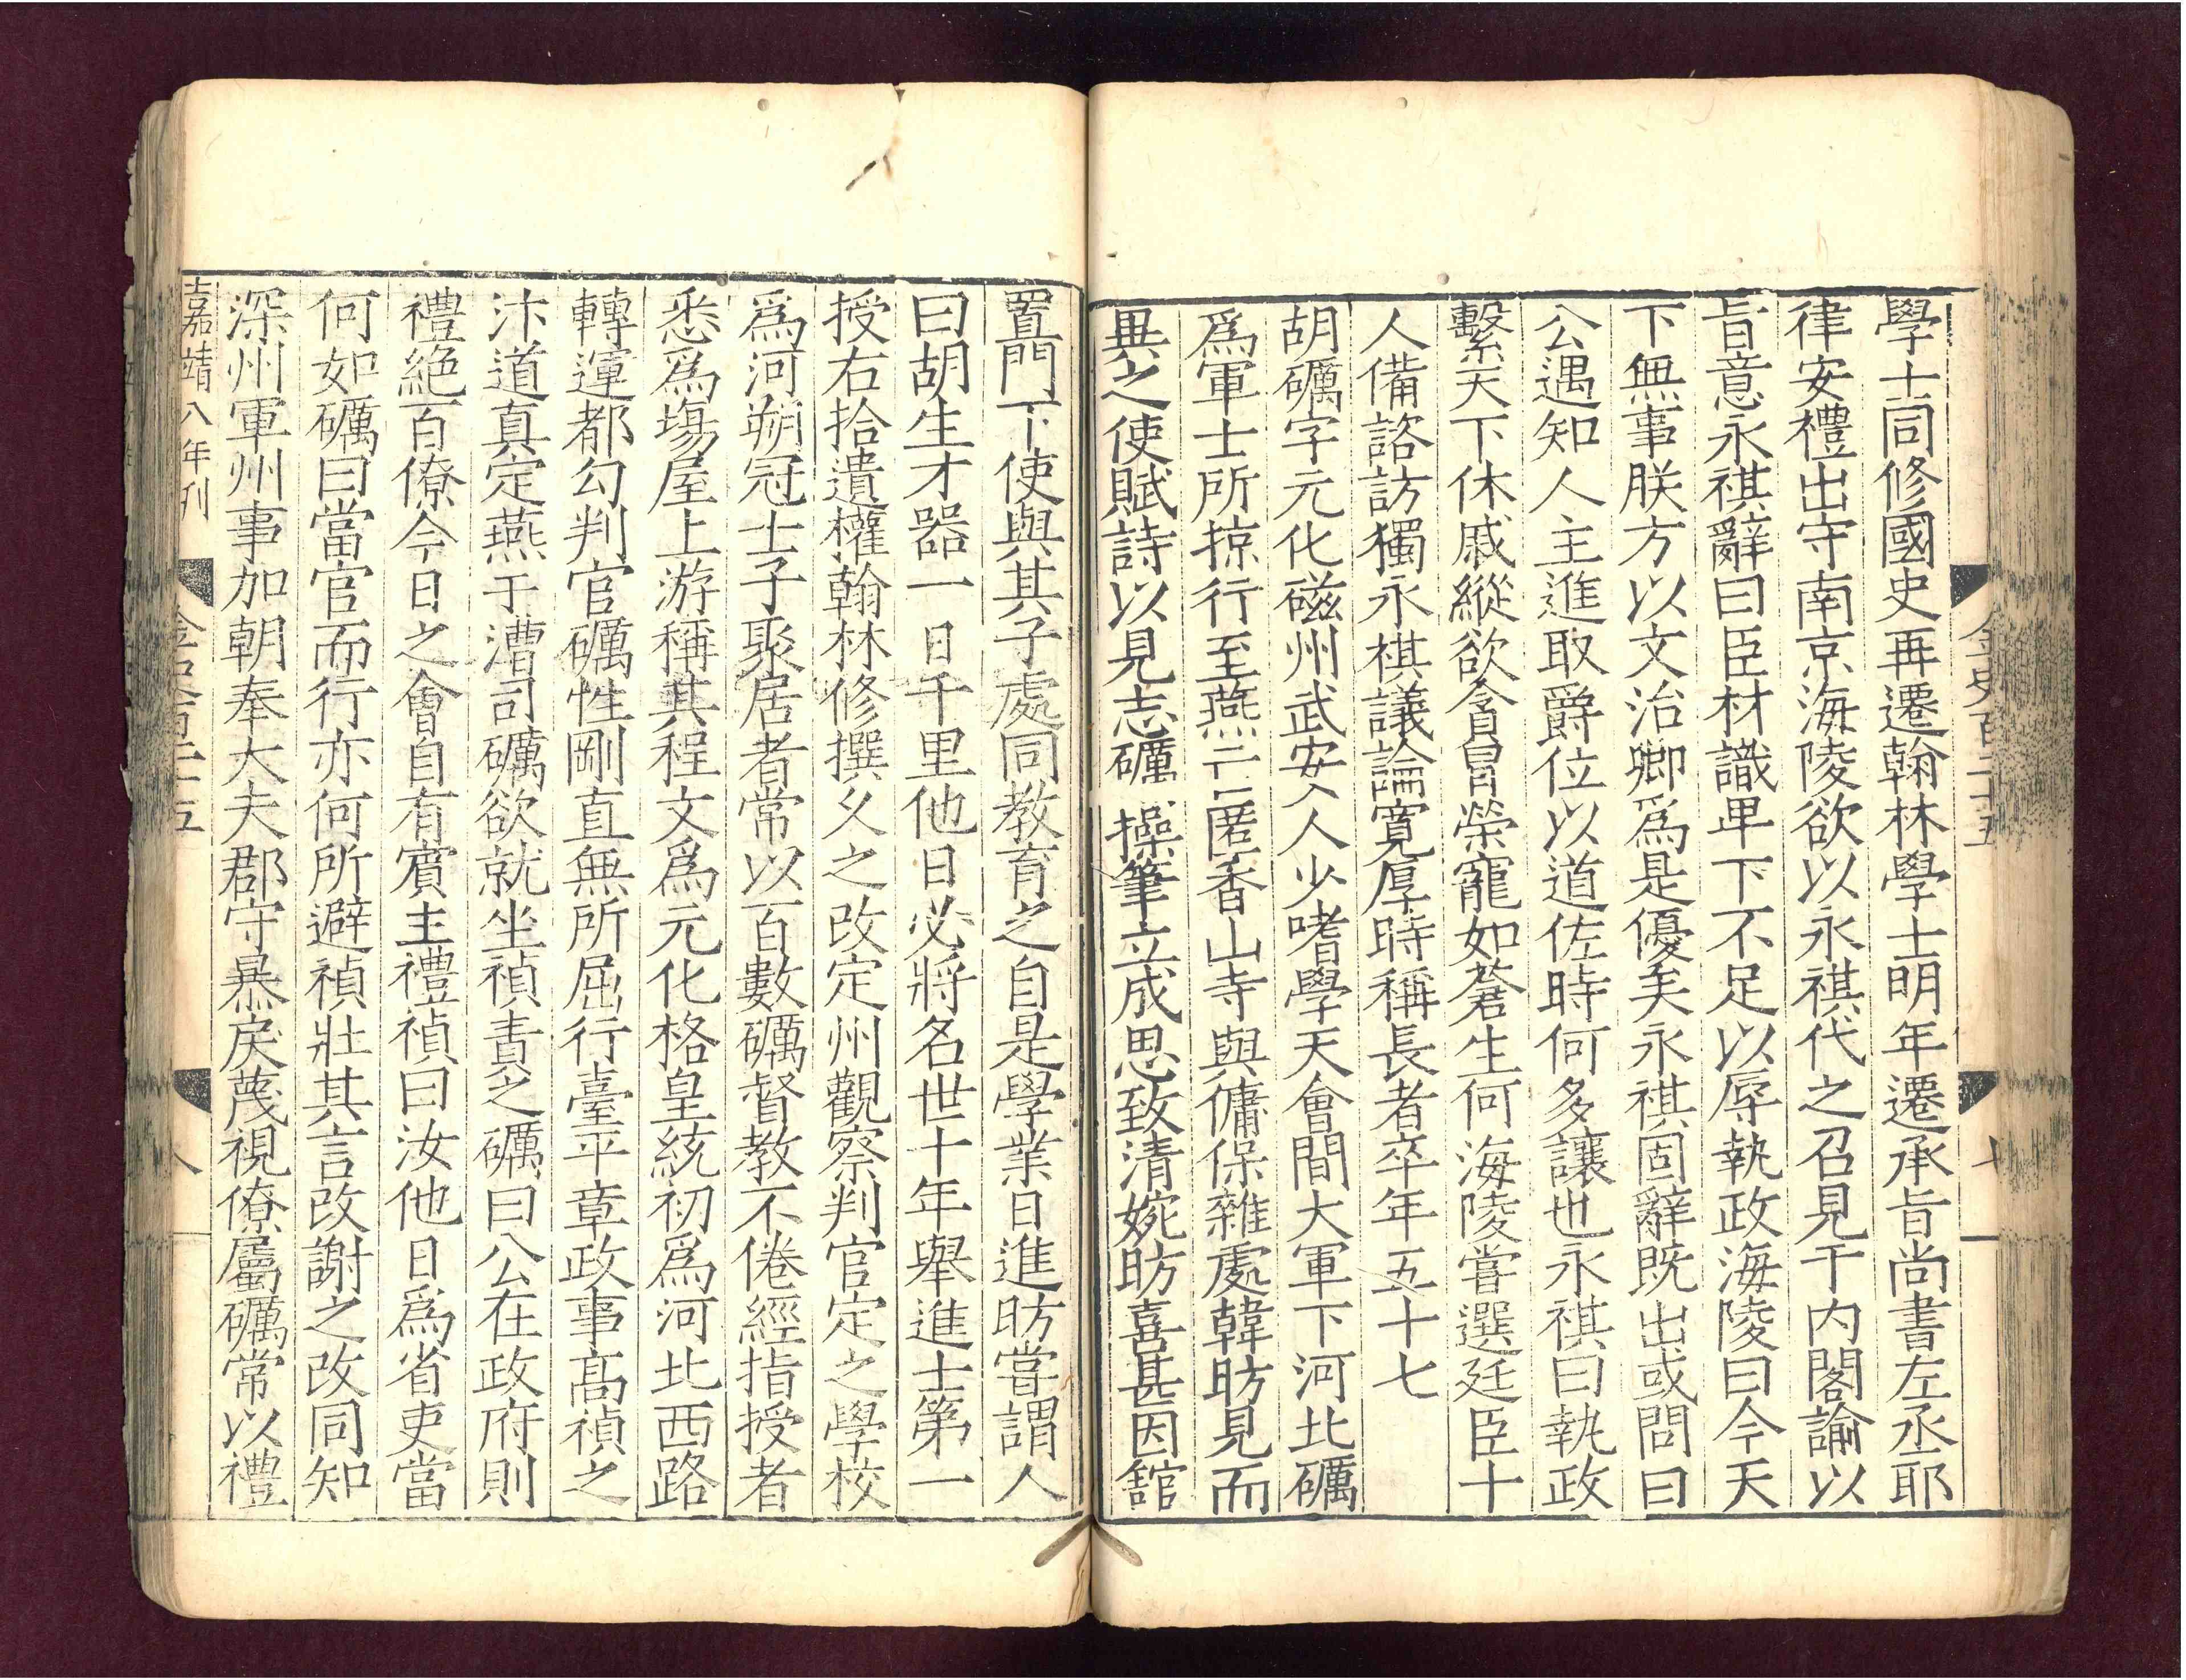 學士同修國史再遷翰林學士明年遷承旨尚書左丞耶
律安禮出守南京海陵欲以永祺代之召見于内閣諭以
旨意永祺辭曰臣材識卑下不足以辱執政海陵曰今天
下無事朕方以文治卿爲是優矣永祺固辭既出或問曰
公遇知人主進取爵位以道佐時何多讓也永祺曰執政
繫天下休戚縱欲貪冒榮寵如蒼生何海陵嘗選廷臣十
人備諮訪獨永祺議論寛厚時稱長者卒年五十七
胡礪字元化磁州武安人少嗜學天會間大軍下河北礪
爲軍士所掠行至燕亡匿香山寺與傭保雜處韓昉見而
異之使賦詩以見志礪操筆立成思致清婉昉喜甚因舘
金史百二十五
七
置門下使與其子處同教育之自是學業日進昉嘗謂人
曰胡生才器一日千里他日必將名世十年舉進士第一
授右拾遺權翰林修撰久之改定州觀察判官定之學校
爲河朔冠士子聚居者常以百數礪督教不倦經指授者
悉爲塲屋上游稱其程文爲元化格皇統初爲河北西路
轉運都勾判官礪性剛直無所屈行臺平章政事高禎之
汴道真定燕于漕司礪欲就坐禎責之礪曰公在政府則
禮絶百僚今日之會自有賓主禮禎曰汝他日爲省吏當
何如礪曰當官而行亦何所避禎壯其言改謝之改同知
深州軍州事加朝奉大夫郡守暴戾蔑視僚屬礪常以禮
嘉靖八年刋
金史百二十五
八